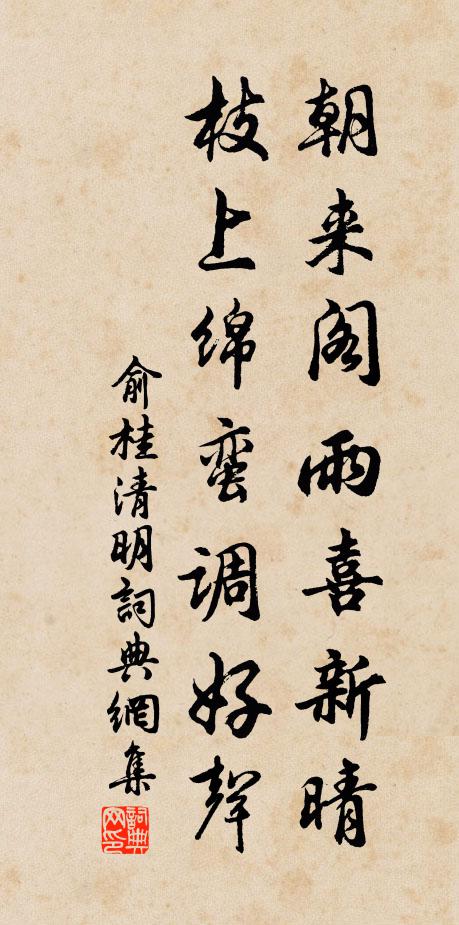 朝来阁雨喜新晴
枝上绵蛮调好声
俞桂清明詞典網集
詞典网印